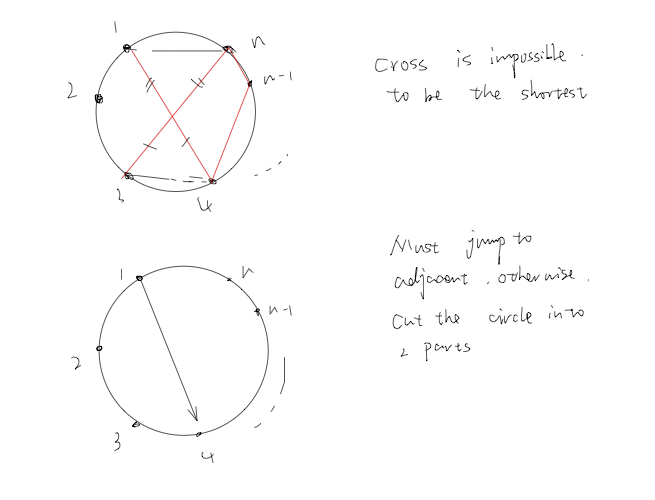 1
n
2
n-1
3
4
Cross is impossible.
to be the shortest
1
n
n-1
2
3
4
Must jump to
adjacent. otherwise.
Cut the circle into
2 parts